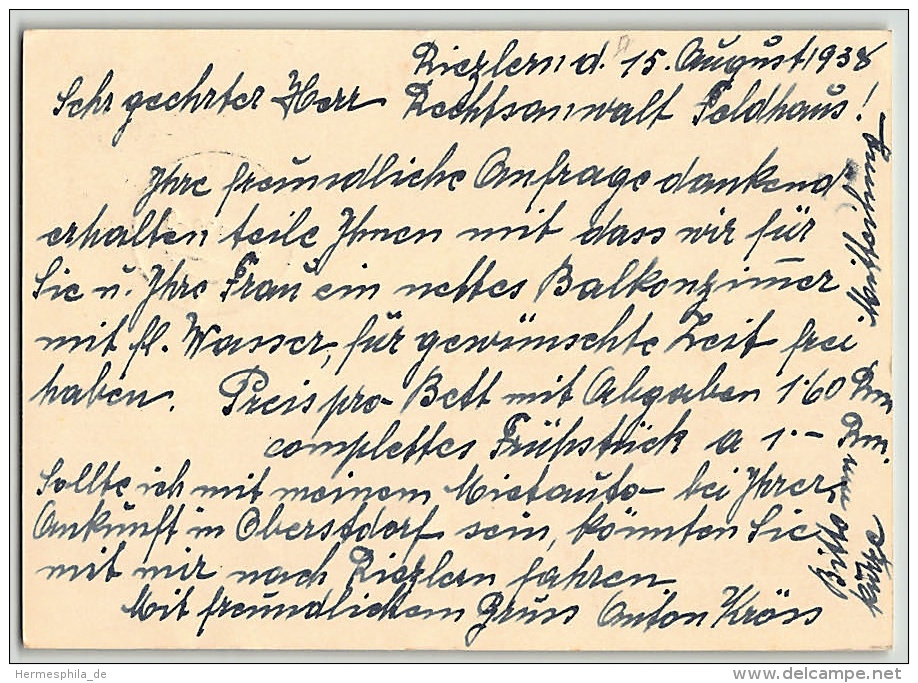 Riezlern d. 15. August 1938
Sehr geehrter Herr Rechtsanwalt Feldhaus!
Ihre freundliche Anfrage dankend
erhalten teile Ihnen mit dass wir für
Sie u. Ihre Frau ein nettes Balkonzimmer
mit fl. Wasser, für gewünschte Zeit frei
haben. Preis pro Bett mit Abgaben 1.60 Rm
complettes Frühstück a 1.- Rm.
Sollte ich mit meinem Mietauto bei Ihrer
Ankunft in Oberstdorf sein, könnten Sie
mit mir nach Riezlern fahren
Mit freundlichem Gruss Anton Kröss
Bitte um
kurze
Mitteilung
Hermesphila_de
www.delcampe.net